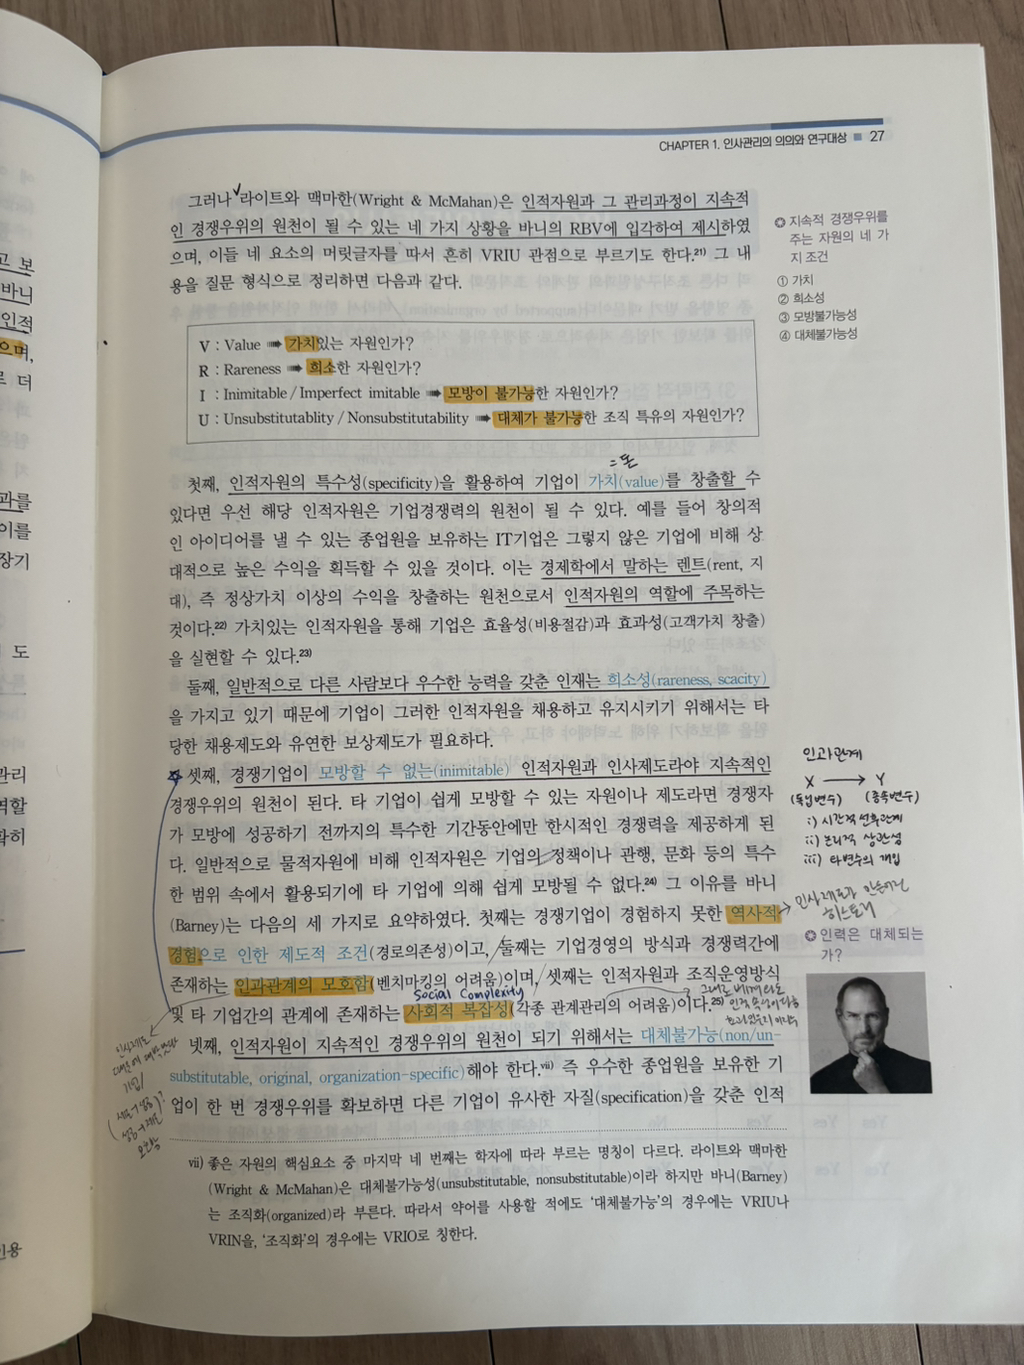 CHAPTER 1. 인사관리의 의의와 연구대상 ■ 27
그러나 라이트와 맥마한(Wright & McMahan)은 인적자원과 그 관리과정이 지속적
인 경쟁우위의 원천이 될 수 있는 네 가지 상황을 바니의 RBV에 입각하여 제시하였
으며, 이들 네 요소의 머릿글자를 따서 흔히 VRIU 관점으로 부르기도 한다.21) 그 내
용을 질문 형식으로 정리하면 다음과 같다.
✪ 지속적 경쟁우위를
주는 자원의 네 가
지 조건
① 가치
② 희소성
③ 모방불가능성
④ 대체불가능성
V : Value ➠ 가치있는 자원인가?
R : Rareness ➠ 희소한 자원인가?
I : Inimitable / Imperfect imitable ➠ 모방이 불가능한 자원인가?
U : Unsubstitutablity / Nonsubstitutability ➠ 대체가 불가능한 조직 특유의 자원인가?
= 돈
첫째, 인적자원의 특수성(specificity)을 활용하여 기업이 가치(value)를 창출할 수
있다면 우선 해당 인적자원은 기업경쟁력의 원천이 될 수 있다. 예를 들어 창의적
인 아이디어를 낼 수 있는 종업원을 보유하는 IT기업은 그렇지 않은 기업에 비해 상
대적으로 높은 수익을 획득할 수 있을 것이다. 이는 경제학에서 말하는 렌트(rent, 지
대), 즉 정상가치 이상의 수익을 창출하는 원천으로서 인적자원의 역할에 주목하는
것이다.22) 가치있는 인적자원을 통해 기업은 효율성(비용절감)과 효과성(고객가치 창출)
을 실현할 수 있다.23)
둘째, 일반적으로 다른 사람보다 우수한 능력을 갖춘 인재는 희소성(rareness, scacity)
을 가지고 있기 때문에 기업이 그러한 인적자원을 채용하고 유지시키기 위해서는 타
당한 채용제도와 유연한 보상제도가 필요하다.
셋째, 경쟁기업이 모방할 수 없는(inimitable) 인적자원과 인사제도라야 지속적인
경쟁우위의 원천이 된다. 타 기업이 쉽게 모방할 수 있는 자원이나 제도라면 경쟁자
가 모방에 성공하기 전까지의 특수한 기간동안에만 한시적인 경쟁력을 제공하게 된
다. 일반적으로 물적자원에 비해 인적자원은 기업의 정책이나 관행, 문화 등의 특수
한 범위 속에서 활용되기에 타 기업에 의해 쉽게 모방될 수 없다.24) 그 이유를 바니
(Barney)는 다음의 세 가지로 요약하였다. 첫째는 경쟁기업이 경험하지 못한 역사적
경험으로 인한 제도적 조건(경로의존성)이고, 둘째는 기업경영의 방식과 경쟁력간에
존재하는 인과관계의 모호함(벤치마킹의 어려움)이며, 셋째는 인적자원과 조직운영방식
Social Complexity
및 타 기업간의 관계에 존재하는 사회적 복잡성(각종 관계관리의 어려움)이다.25)
인과관계
X → Y
(독립변수) (종속변수)
i) 시간적 선후관계
ii) 논리적 상관성
iii) 타변수의 개입
히스토리
✪ 인력은 대체되는
가?
넷째, 인적자원이 지속적인 경쟁우위의 원천이 되기 위해서는 대체불가능(non/un-
substitutable, original, organization-specific)해야 한다.vii) 즉 우수한 종업원을 보유한 기
업이 한 번 경쟁우위를 확보하면 다른 기업이 유사한 자질(specification)을 갖춘 인적
vii) 좋은 자원의 핵심요소 중 마지막 네 번째는 학자에 따라 부르는 명칭이 다르다. 라이트와 맥마한
(Wright & McMahan)은 대체불가능성(unsubstitutable, nonsubstitutable)이라 하지만 바니(Barney)
는 조직화(organized)라 부른다. 따라서 약어를 사용할 적에도 '대체불가능'의 경우에는 VRIU나
VRIN을, '조직화'의 경우에는 VRIO로 칭한다.